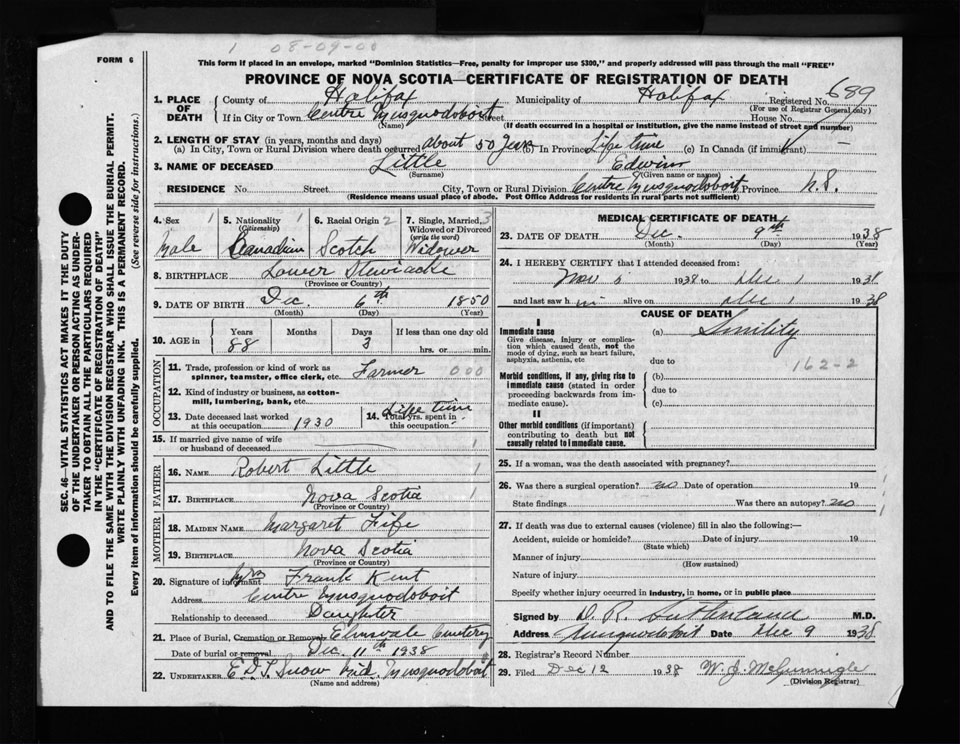 1 08-09-00
FORM 6
This form if placed in an envelope, marked "Dominion Statistics—Free, penalty for improper use $300," and properly addressed will pass through the mail "FREE"
PROVINCE OF NOVA SCOTIA—CERTIFICATE OF REGISTRATION OF DEATH
SEC. 46—VITAL STATISTICS ACT MAKES IT THE DUTY
OF THE UNDERTAKER OR PERSON ACTING AS UNDER-
TAKER TO OBTAIN ALL THE PARTICULARS REQUIRED
IN THE "CERTIFICATE OF REGISTRATION OF DEATH"
AND TO FILE THE SAME WITH THE DIVISION REGISTRAR WHO SHALL ISSUE THE BURIAL PERMIT.
WRITE PLAINLY WITH UNFADING INK. THIS IS A PERMANENT RECORD.
Every item of information should be carefully supplied. (See reverse side for instructions.)
1. PLACE OF DEATH
County of Halifax Municipality of Halifax Registered No. 689
(For use of Registrar General only)
If in City or Town Centre Musquodoboit Street House No.
(Name) (If death occurred in a hospital or institution, give the name instead of street and number)
2. LENGTH OF STAY (in years, months and days)
(a) In City, Town or Rural Division where death occurred about 50 years (b) In Province Life time (c) In Canada (if immigrant)
3. NAME OF DECEASED Little Edwin
(Surname) (Given name or names)
RESIDENCE No. Street City, Town or Rural Division Centre Musquodoboit Province N.S.
(Residence means usual place of abode. Post Office Address for residents in rural parts not sufficient)
4. Sex 1 5. Nationality 1 6. Racial Origin 2 7. Single, Married, 3
(Citizenship) Widowed or Divorced
(write the word)
Male Canadian Scotch Widower
8. BIRTHPLACE Lower Stewiacke
(Province or Country)
9. DATE OF BIRTH Dec. 6th 1850
(Month) (Day) (Year)
10. AGE in Years Months Days If less than one day old
88 3 hrs. or min.
OCCUPATION
11. Trade, profession or kind of work as
spinner, teamster, office clerk, etc. Farmer 000
12. Kind of industry or business, as cotton-
mill, lumbering, bank, etc.
13. Date deceased last worked
at this occupation 1930
14. Total yrs. spent in
this occupation Life time
15. If married give name of wife
or husband of deceased
FATHER
16. NAME Robert Little 1
17. BIRTHPLACE Nova Scotia 1
(Province or Country)
MOTHER
18. MAIDEN NAME Margaret Fife
19. BIRTHPLACE Nova Scotia
(Province or Country)
20. Signature of informant Mrs Frank Kent
Address Centre Musquodoboit
Relationship to deceased Daughter
21. Place of Burial, Cremation or Removal Elmsvale Cemetery
Date of burial or removal Dec. 11th 1938
22. UNDERTAKER E.D.T. Snow Mid. Musquodoboit
(Name and address)
MEDICAL CERTIFICATE OF DEATH
23. DATE OF DEATH Dec. 9th 1938
(Month) (Day) (Year)
24. I HEREBY CERTIFY that I attended deceased from:
Nov 1938 to Dec 1 1938
and last saw him alive on Dec 1 1938
CAUSE OF DEATH
I
Immediate cause (a) Senility
Give disease, injury or complica-
tion which caused death, not the
mode of dying, such as heart failure,
asphyxia, asthenia, etc
due to 162-2
Morbid conditions, if any, giving rise to
immediate cause (stated in order
proceeding backwards from im-
mediate cause).
(b)
due to
(c)
II
Other morbid conditions (if important)
contributing to death but not
causally related to immediate cause.
25. If a woman, was the death associated with pregnancy?
26. Was there a surgical operation? no Date of operation 19
State findings Was there an autopsy? no
27. If death was due to external causes (violence) fill in also the following:—
Accident, suicide or homicide? Date of injury 19
(State which)
Manner of injury
(How sustained)
Nature of injury
Specify whether injury occurred in industry, in home, or in public place
Signed by D. R. Sutherland M.D.
Address Musquodoboit Date Dec 9 1938
28. Registrar's Record Number
29. Filed Dec 12 1938 W. J. McGunnigle
(Division Registrar)